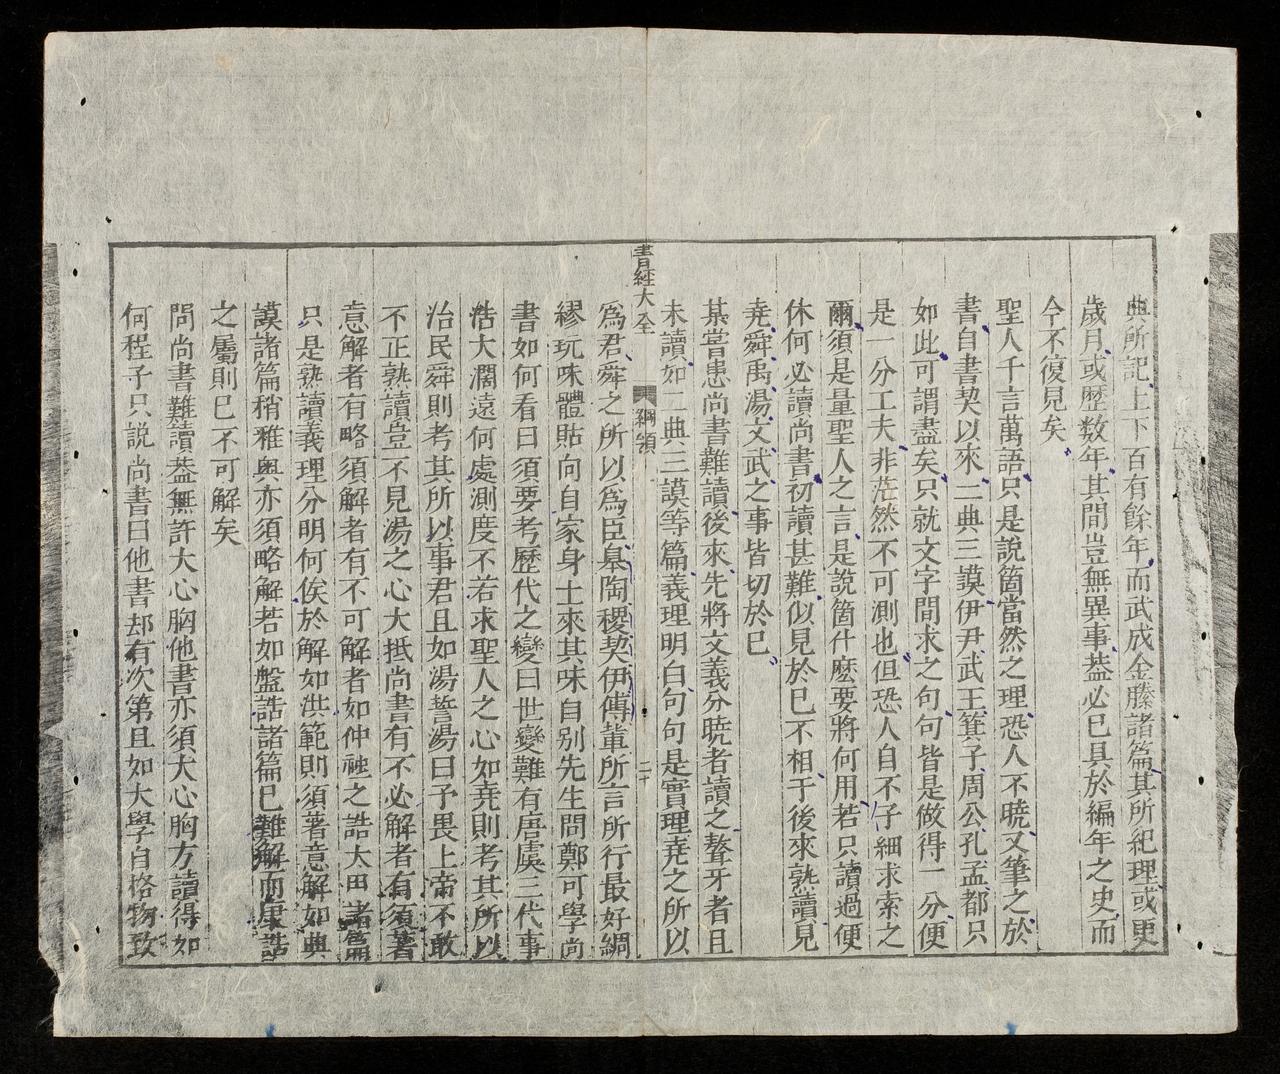 典所記上下百有餘年而武成金縢諸篇其所紀理或更
歲月或歷数年其間豈無異事蓋必已具於編年之史而
今不復見矣
聖人千言萬語只是說箇當然之理恐人不曉又筆之於
書自書契以來二典三謨伊尹武王箕子周公孔孟都只
如此可謂盡矣只就文字間求之句句皆是做得一分便
是一分工夫非茫然不可測也但恐人自不子細求索之
爾須是量聖人之言是說箇什麽要將何用若只讀過便
休何必讀尚書初讀甚難似見於己不相干後來熟讀見
堯舜禹湯文武之事皆切於已
某嘗患尚書難讀後來先將文義分曉者讀之聱牙者且
未讀如二典三謨等篇義理明白句句是實理堯之所以
書經大全 綱領 二十
爲君舜之所以爲臣皋陶稷契伊傅輩所言所行最好綢
繆玩味體貼向自家身上來其味自别先生問鄭可學尚
書如何看曰須要考歷代之變曰世變難有唐虞三代事
浩大濶遠何處測度不若求聖人之心如堯則考其所以
治民舜則考其所以事君且如湯誓湯曰予畏上帝不敢
不正熟讀豈不見湯之心大抵尚書有不必解者有須著
意解者有略須解者有不可解者如仲虺之誥太甲諸篇
只是熟讀義理分明何俟於解如洪範則須著意解如典
謨諸篇稍雅奧亦須略解若如盤誥諸篇已難解而康誥
之屬則已不可解矣
問尚書難讀蓋無許大心胸他書亦須大心胸方讀得如
何程子只說尚書曰他書却有次第且如大學自格物致